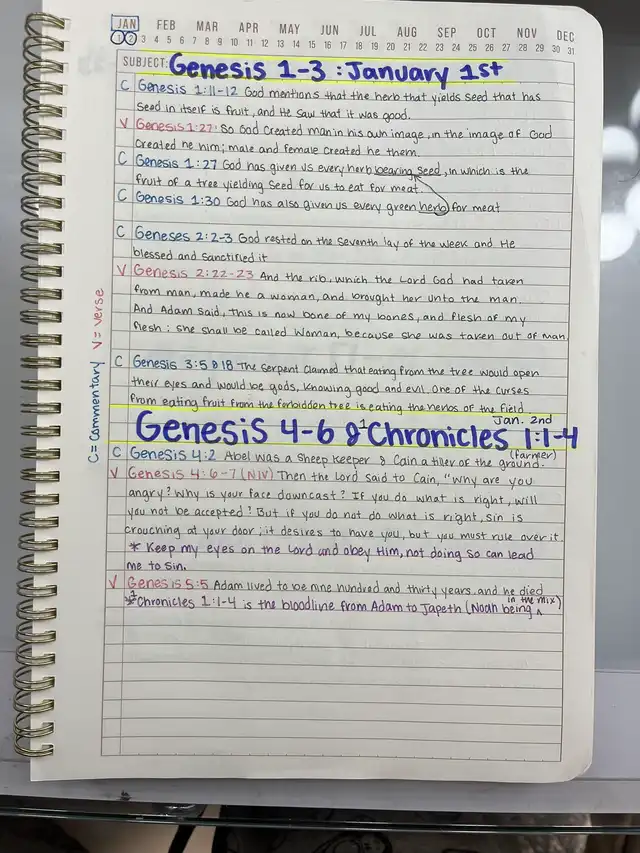 JAN FEB MAR APR MAY JUN JUL AUG SEP OCT NOV DEC
1 2 3 4 5 6 7 8 9 10 11 12 13 14 15 16 17 18 19 20 21 22 23 24 25 26 27 28 29 30 31
SUBJECT: Genesis 1-3 : January 1st
C Genesis 1:11-12 God mentions that the herb that yields seed that has
seed in itself is fruit, and He saw that it was good.
V Genesis 1:27: So God created man in his own image, in the image of God
created he him; male and female created he them.
C Genesis 1:27 God has given us every herb bearing seed, in which is the
fruit of a tree yielding seed for us to eat for meat.
C Genesis 1:30 God has also given us every green herb for meat
C Geneses 2:2-3 God rested on the seventh lay of the week and He
blessed and sanctified it
V Genesis 2:22-23 And the rib, which the Lord God had taken
from man, made he a woman, and brought her unto the man.
And Adam said, this is now bone of my bones, and flesh of my
flesh; she shall be called Woman, because she was taken out of man.
C Genesis 3:5 & 18 The serpent claimed that eating from the tree would open
their eyes and would be gods, knowing good and evil. One of the curses
from eating fruit from the forbidden tree is eating the herbs of the field
Jan. 2nd
Genesis 4-6 & 1 Chronicles 1:1-4
C Genesis 4:2 Abel was a sheep keeper & Cain a tiler of the ground. (farmer)
V Genesis 4:6-7 (NIV) Then the Lord said to Cain, "Why are you
angry? Why is your face downcast? If you do what is right, will
you not be accepted? But if you do not do what is right, sin is
crouching at your door; it desires to have you, but you must rule over it.
* Keep my eyes on the Lord and obey Him, not doing so can lead
me to sin.
V Genesis 5:5 Adam lived to be nine hundred and thirty years. and he died
* 1 Chronicles 1:1-4 is the bloodline from Adam to Japeth (Noah being ^ in the mix)
C = Commentary V = Verse